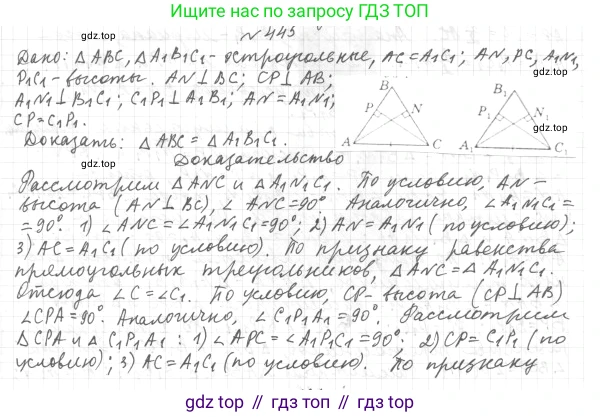 Ищите нас по запросу ГДЗ ТОП
№ 445
gdz.top
Дано: △ABC, △A₁B₁C₁ - остроугольные, AC=A₁C₁; AN, PC, A₁N₁,
P₁C₁ - высоты. AN⊥BC; CP⊥AB;
A₁N₁⊥B₁C₁; C₁P₁⊥A₁B₁; AN=A₁N₁;
CP=C₁P₁.
B B₁
P N P₁ N₁
A C A₁ C₁
gdz.top gdz.top
Доказать: △ABC=△A₁B₁C₁.
Доказательство
Рассмотрим △ANC и △A₁N₁C₁. По условию, AN -
высота (AN⊥BC), ∠ANC=90°. Аналогично, ∠A₁N₁C₁=
=90°. 1) ∠ANC=∠A₁N₁C₁=90°; 2) AN=A₁N₁ (по условию);
3) AC=A₁C₁ (по условию). По признаку равенства
прямоугольных треугольников, △ANC=△A₁N₁C₁.
Отсюда ∠C=∠C₁. По условию, CP - высота (CP⊥AB)
∠CPA=90°. Аналогично, ∠C₁P₁A₁=90°. Рассмотрим
△CPA и △C₁P₁A₁: 1) ∠APC=∠A₁P₁C₁=90°; 2) CP=C₁P₁ (по
условию); 3) AC=A₁C₁ (по условию). По признаку
gdz.top // gdz.top // gdz.top // gdz.top